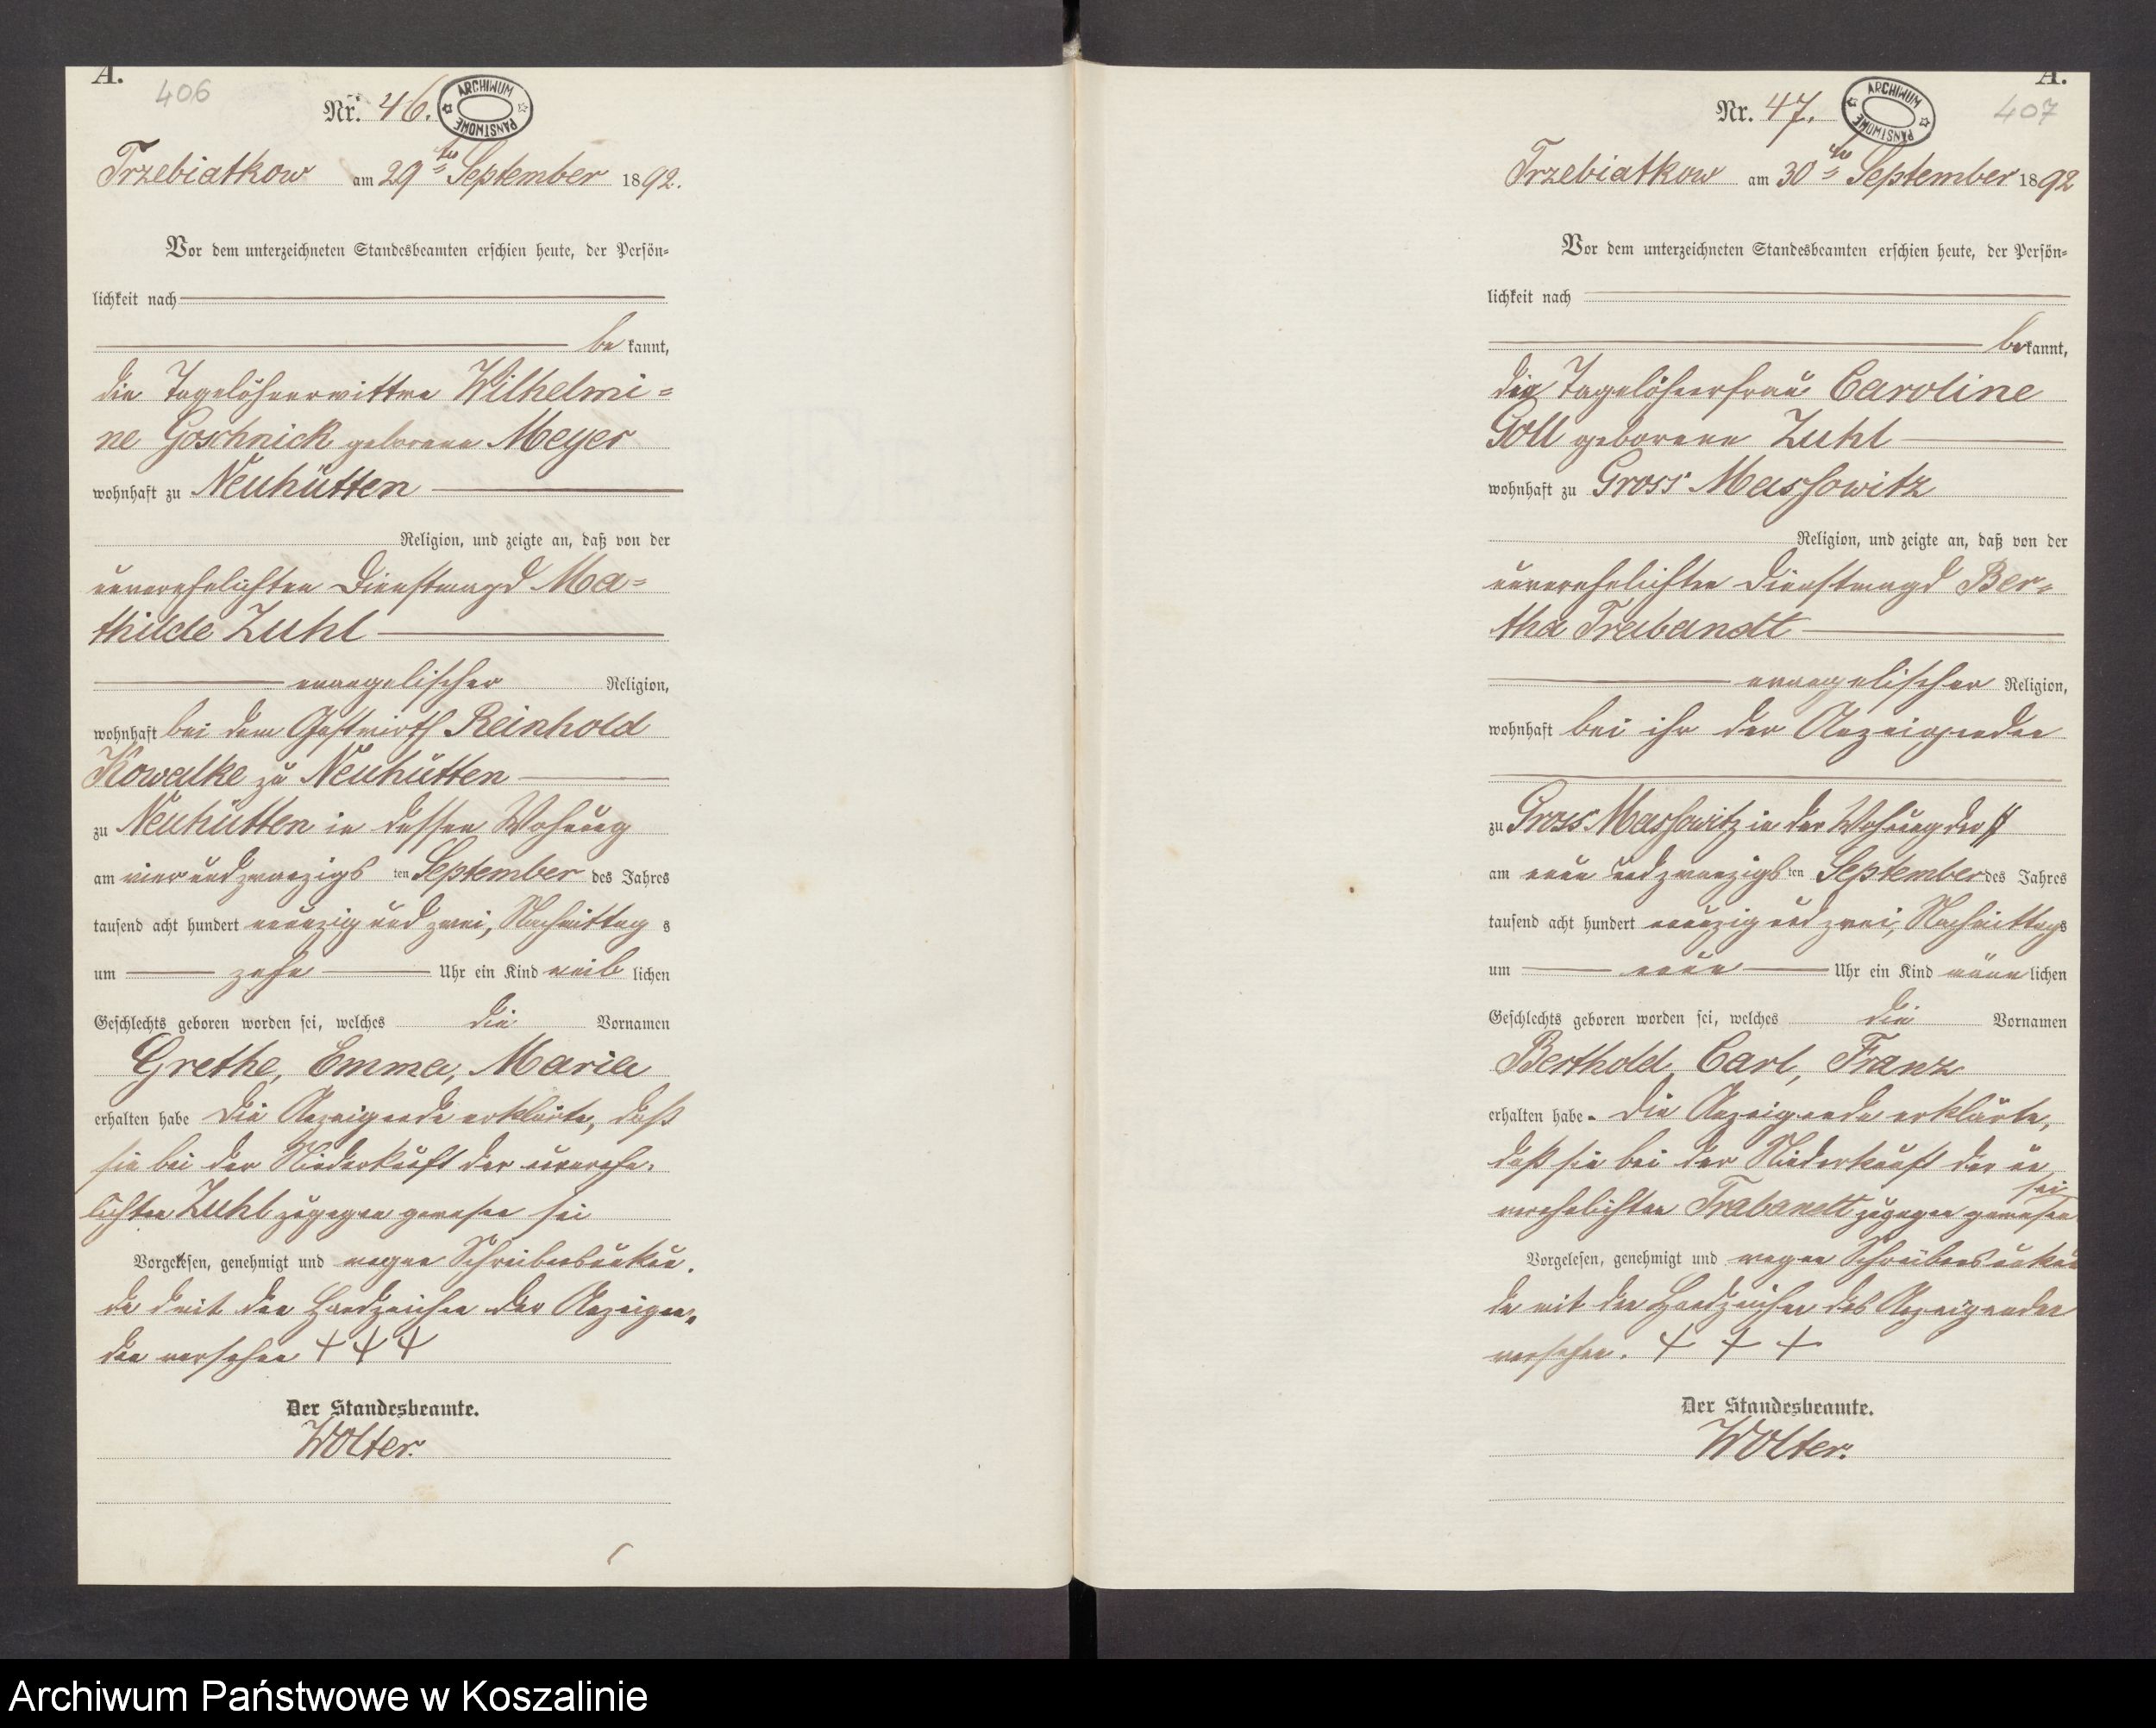 A.
406
Nr. 46.
ARCHIWUM PAŃSTWOWE
Trzebiatkow am 29ten September 1892.
Vor dem unterzeichneten Standesbeamten erschien heute, der Persön=
lichkeit nach
be kannt,
die Tagelöhnerwittwe Wilhelmi=
ne Goschnick geborene Meyer
wohnhaft zu Neuhütten
Religion, und zeigte an, daß von der
unverehelichten Dienstmagd Ma=
thilde Zuhl
evangelischer Religion,
wohnhaft bei dem Gastwirth Reinhold
Kowalke zu Neuhütten
zu Neuhütten in dessen Wohnung
am vier und zwanzigs ten September des Jahres
tausend acht hundert neunzig und zwei, Nachmittag s
um zehn Uhr ein Kind weib lichen
Geschlechts geboren worden sei, welches die Vornamen
Grethe, Emma, Maria
erhalten habe Die Anzeigende erklärte, daß
sie bei der Niederkunft der unverehe=
lichten Zuhl zugegen gewesen sei
Vorgelesen, genehmigt und wegen Schreibensunkun=
de mit den Handzeichen der Anzeigen=
den versehen + + +
Der Standesbeamte.
Wolter.
A.
407
Nr. 47.
ARCHIWUM PAŃSTWOWE
Trzebiatkow am 30ten September 1892
Vor dem unterzeichneten Standesbeamten erschien heute, der Persön=
lichkeit nach
be kannt,
die Tagelöhnerfrau Caroline
Göll geborene Zuhl
wohnhaft zu Gross Massowitz
Religion, und zeigte an, daß von der
unverehelichten Dienstmagd Ber=
tha Trabandt
evangelischer Religion,
wohnhaft bei ihr der Anzeigenden
zu Gross Massowitz in der Wohnung der
am neun und zwanzigs ten September des Jahres
tausend acht hundert neunzig und zwei, Nachmittags
um neun Uhr ein Kind männ lichen
Geschlechts geboren worden sei, welches die Vornamen
Berthold, Carl, Franz
erhalten habe. Die Anzeigende erklärte,
daß sie bei der Niederkunft der un
verehelichten Trabandt zugegen gewesen sei
Vorgelesen, genehmigt und wegen Schreibensunkun
de mit den Handzeichen der Anzeigenden
versehen. + + +
Der Standesbeamte.
Wolter.
Archiwum Państwowe w Koszalinie